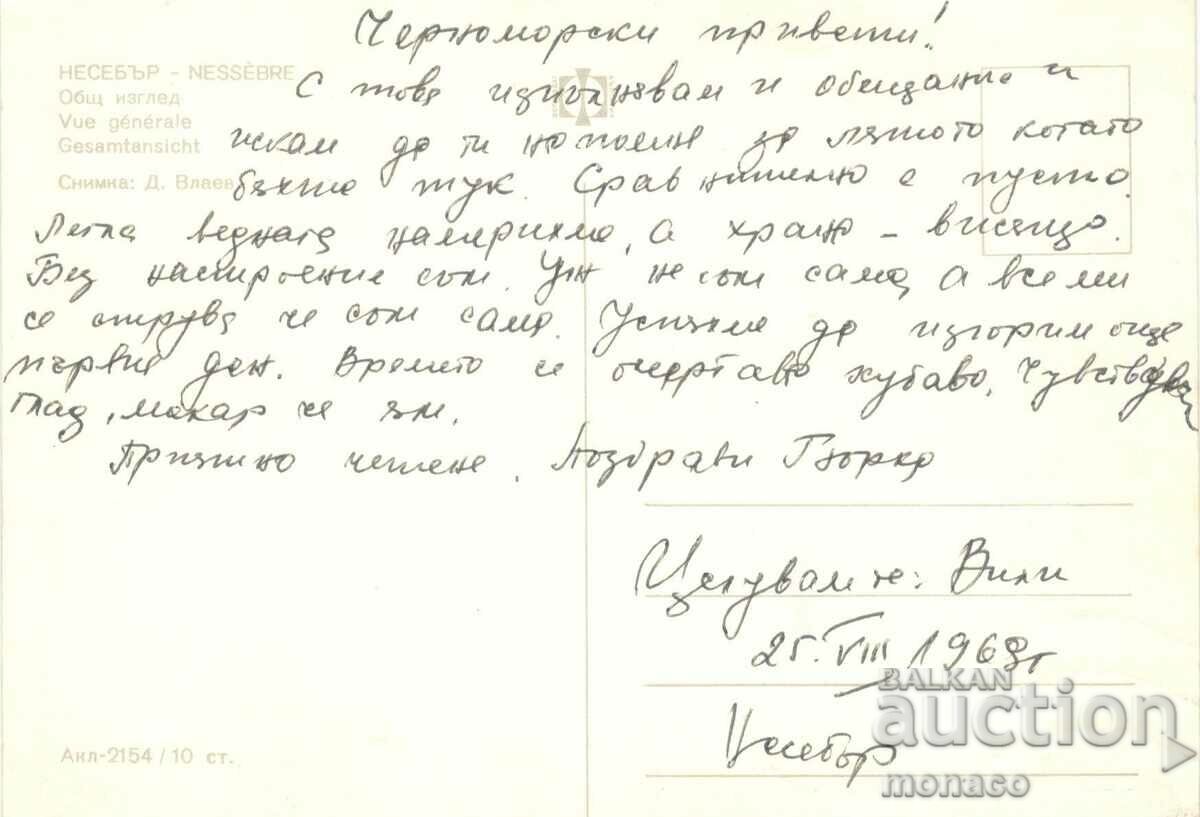 Черноморски привети!
НЕСЕБЪР - NESSÈBRE
Общ изглед
Vue générale
Gesamtansicht
Снимка: Д. Влаев
С това изпълнявам и обещание и
искам да ти напомня за лятото когато
бяхме тук. Сравнително е пусто.
Легла веднага намерихме, а храна – висящо.
Без настроение съм. Уж не съм сама, а все ми
се струва че съм сама. Успяхме да изгорим още
първия ден. Времето се очертава хубаво. Чувствам
глад, макар че ям.
Приятно четене. Поздрави
Целувам те: Вили
25.VIII 1968г
Несебър
Акл-2154 / 10 ст.
BALKAN
auction
monaco